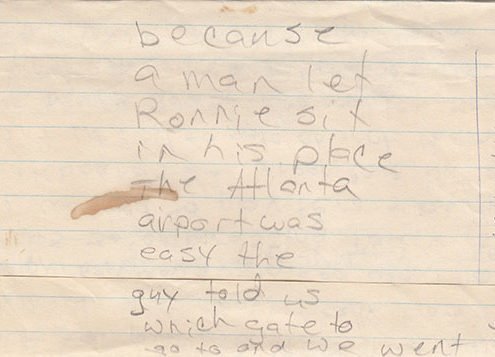 because
a man let
Ronnie sit
in his place
The Atlanta
airport was
easy the
guy told us
which gate to
go to and we went